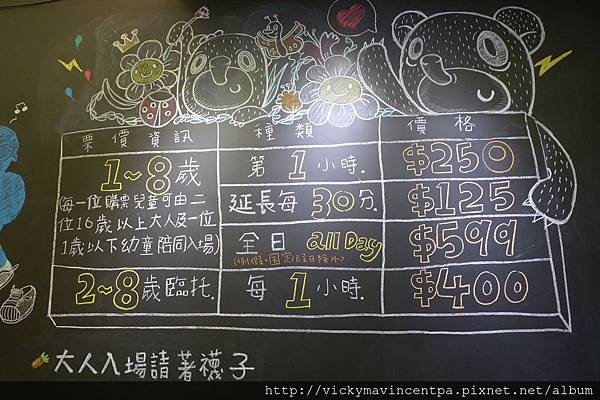 票價資訊 種類 價格
1~8歲
(每一位購票兒童可由二
位16歲以上大人及一位
1歲以下幼童陪同入場)
第1小時. $250
延長每30分. $125
全日 all Day $599
(例假.國定假日除外)
2~8歲臨托. 每1小時. $400
大人入場請著襪子
http://vickymavincentpa.pixnet.net/album